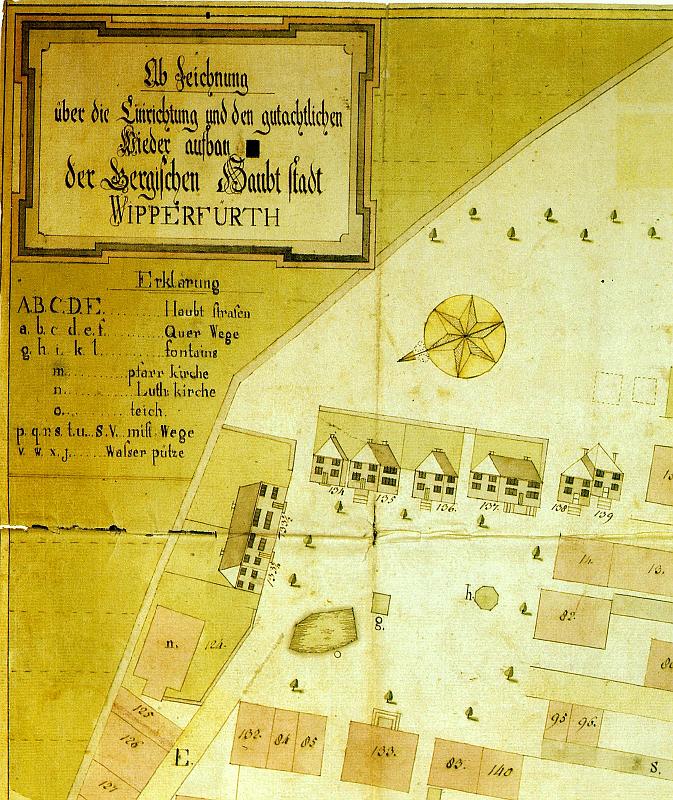 Ab Zeichnung
über die Einrichtung und den gutachtlichen
Wieder aufbau
der Bergischen Haubt stadt
WIPPERFÜRTH
Erklärung
A.B.C.D.E. Haubt strasen
a. b. c. d. e. f. Quer Wege
g. h. i. k. l. fontains
m. pfarr kirche
n. Luth. kirche
o. teich.
p. q. r. s. t. u. S. V. mist Wege
v. w. x. j. Walser pütze
134
135
136
137
138
139
14.
13.
h.
82.
g.
o
n.
124.
125
126
127
E.
132.
84
85
133.
83.
140
95
96.
s.